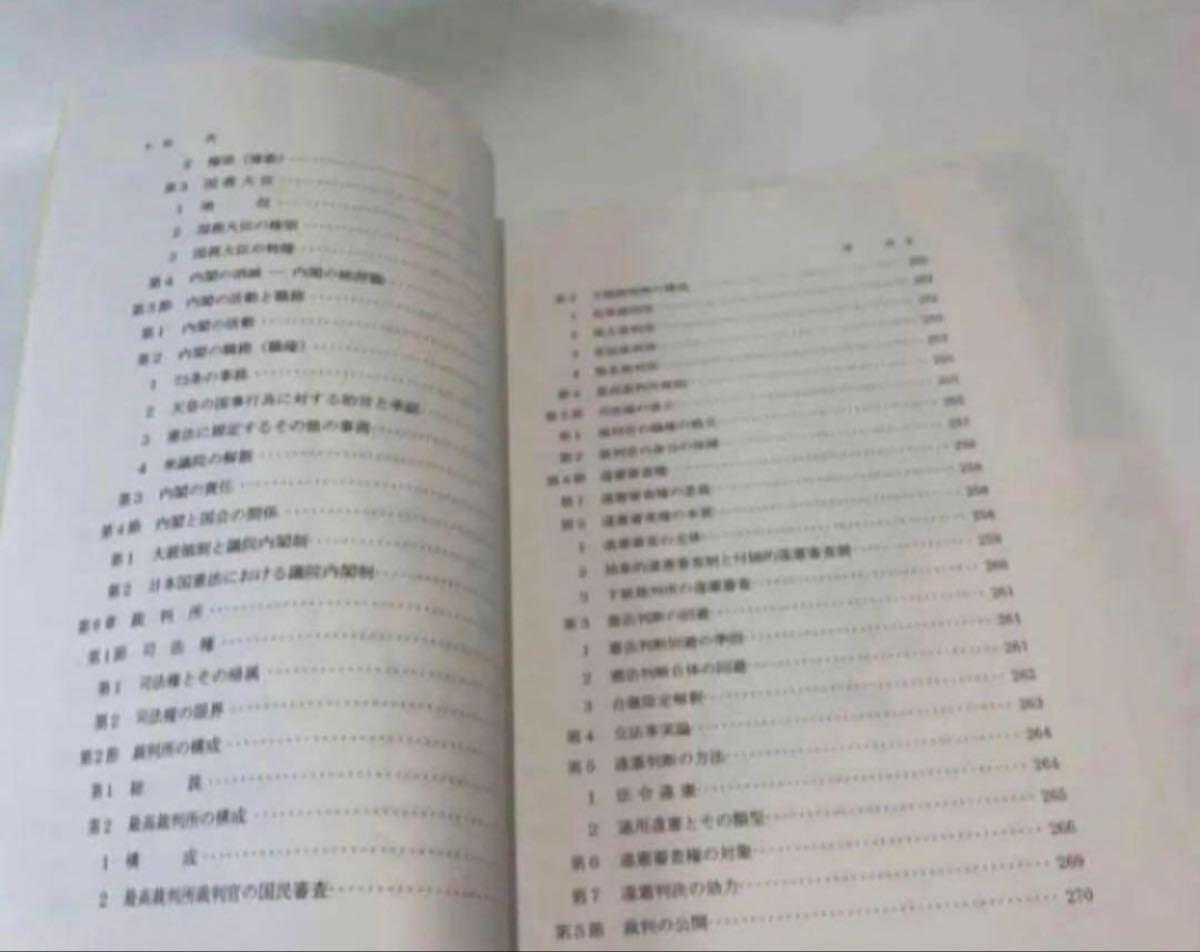 2 権限（権能）
第3 国務大臣
1 地 位
2 国務大臣の権限
3 国務大臣の特権
第4 内閣の消滅 — 内閣の総辞職
第3節 内閣の活動と職務
第1 内閣の活動
第2 内閣の職務（職権）
1 73条の事務
2 天皇の国事行為に対する助言と承認
3 憲法に規定するその他の事務
4 衆議院の解散
第3 内閣の責任
第4節 内閣と国会の関係
第1 大統領制と議院内閣制
第2 日本国憲法における議院内閣制
第6章 裁 判 所
第1節 司 法 権
第1 司法権とその帰属
第2 司法権の限界
第2節 裁判所の構成
第1 総 説
第2 最高裁判所の構成
1 構 成
2 最高裁判所裁判官の国民審査
第3 下級裁判所の構成
1 高等裁判所
2 地方裁判所
3 家庭裁判所
4 簡易裁判所
第4 最高裁判所規則
第3節 司法権の独立
第1 裁判官の職権の独立
第2 裁判官の身分の保障
第4節 違憲審査権
第1 違憲審査権の意義 258
第2 違憲審査権の本質 258
1 違憲審査の主体 258
2 抽象的違憲審査制と付随的違憲審査制 259
3 下級裁判所の違憲審査 260
第3 憲法判断の回避 261
1 憲法判断回避の準則 261
2 憲法判断自体の回避 261
3 合憲限定解釈 262
第4 立法事実論 263
第5 違憲判断の方法 264
1 法 令 違 憲 264
2 適用違憲とその類型 265
第6 違憲審査権の対象 266
第7 違憲判決の効力 269
第5節 裁判の公開 270